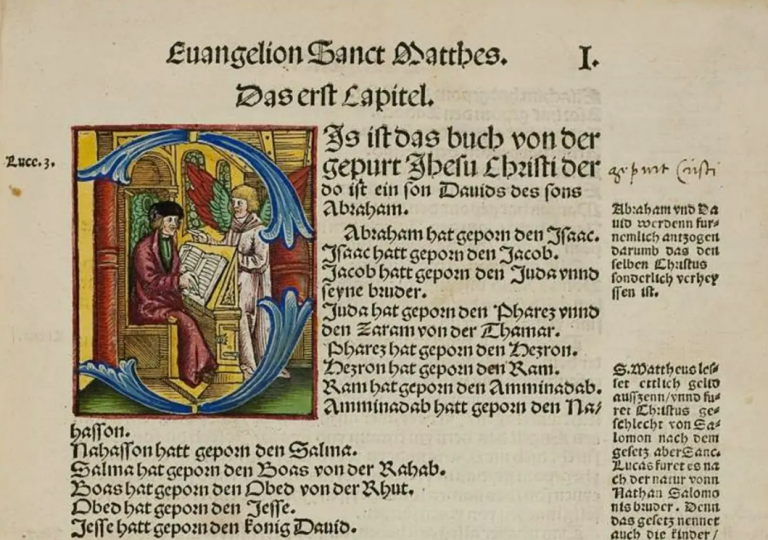 Euangelion Sanct Matthes. I.
Das erst Capitel.
Luce. 3.
Is ist das buch von der
gepurt Jhesu Christi der
do ist ein son Dauids des sons
Abraham.
Abraham hat geporn den Isaac.
Isaac hatt geporn den Jacob.
Jacob hatt geporn den Juda vnnd
seyne bruder.
Juda hat geporn den Pharez vnnd
den Zaram von der Thamar.
Pharez hat geporn den Hezron.
Hezron hat geporn den Ram.
Ram hat geporn den Amminadab.
Amminadab hatt geporn den Na/
hasson.
Nahasson hatt geporn den Salma.
Salma hat geporn den Boas von der Rahab.
Boas hat geporn den Obed von der Rhut.
Obed hat geporn den Jesse.
Jesse hatt geporn den konig Dauid.
gepurt Cristi
Abraham vnd Da
uid werdenn fur-
nemlich antzogen
darumb das den
selben Christus
sonderlich verhey
ssen ist.
S. Mattheus les-
set ettlich gelid
aussenn/vnnd fu-
ret Christus ge-
schlecht von Sa-
lomon nach dem
gesetz aber Sanc.
Lucas furet es na
ch der natur vonn
Nathan Salomo
nis bruder. Denn
das gesetz nennet
auch die kinder/